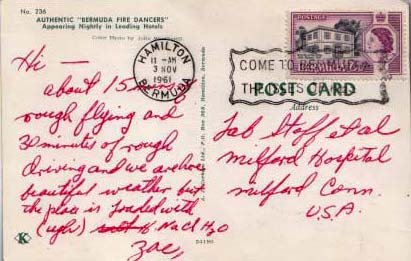 No. 236
AUTHENTIC "BERMUDA FIRE DANCERS"
Appearing Nightly in Leading Hotels
Color Photo by John
Hi —
about 15
rough flying and
30 minutes of rough
driving and we are here
beautiful weather but
the place is loaded with
(ugh) salt NaCl H2O
Zac,
HAMILTON
11 - AM
3 NOV
1961
BERMUDA
POSTAGE
COME TO BERMUDA
POST CARD
Address
Lab Staff et al
Milford Hospital
Milford Conn.
U.S.A.
Ltd., P.O. Box Hamilton, Bermuda
K